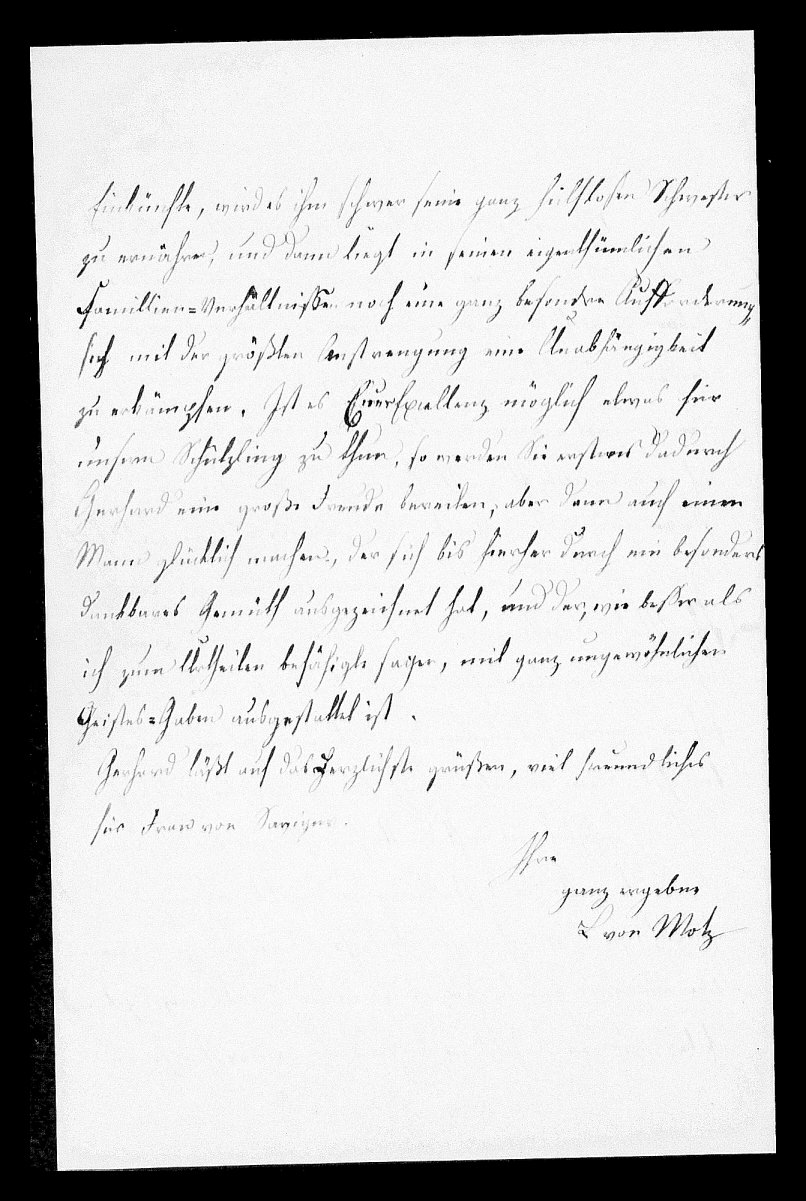 Einkünfte, wird es ihm schwer seine ganz hülflosen Schwester
zu ernähren, und dann liegt in seinen eigenthümlichen
Famillien=Verhältnissen noch eine ganz besondre Aufforderung,
sich mit der größten Anstrengung eine Unabhängigkeit
zu erkämpfen. Ist es Euer Excellenz möglich etwas für
unsern Schützling zu thun, so werden Sie erstens dadurch
Gerhard eine große Freude bereiten, aber dann auch einen
Mann glücklich machen, der sich bis hierher durch ein besonders
dankbares Gemüth ausgezeichnet hat, und der, wie besser als
ich zum Urtheilen befähigte sagen, mit ganz ungewöhnlichen
Geistes=Gaben ausgestattet ist.
Gerhard läßt auf das Herzlichste grüßen, viel freundliches
für Frau von Savigny.
Ihre
ganz ergebne
L von Motz